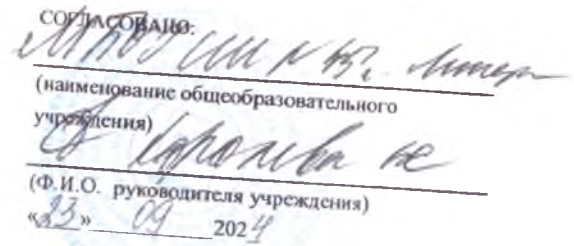 СОГЛАСОВАНО:
МБОУ СШ №
(наименование общеобразовательного
учреждения)
Королева
(Ф.И.О. руководителя учреждения)
«23» 09 2024